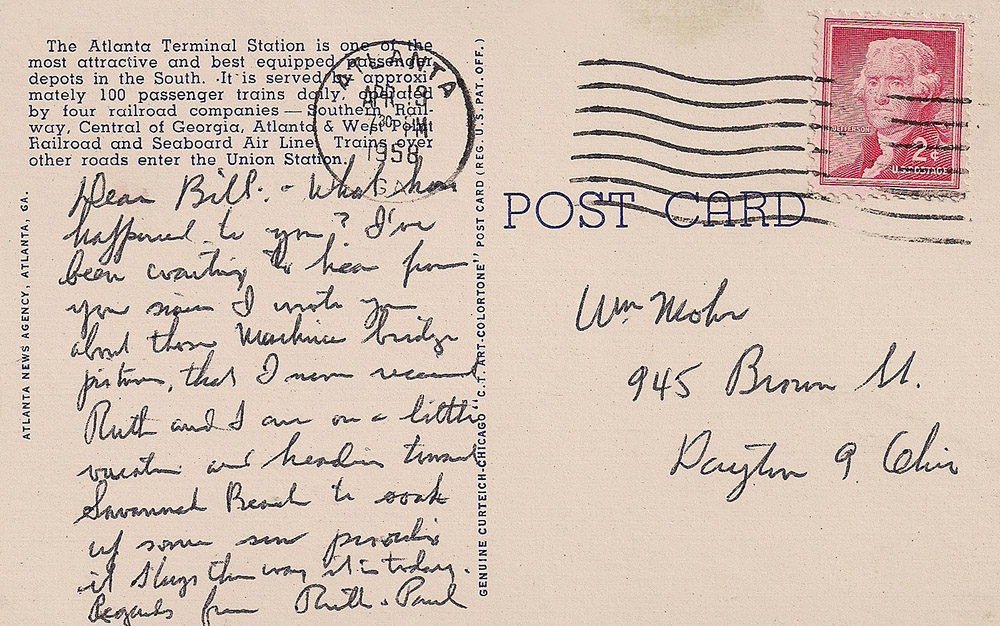 The Atlanta Terminal Station is one of the
most attractive and best equipped passenger
depots in the South. It is served by approxi
mately 100 passenger trains daily, operated
by four railroad companies — Southern Rail-
way, Central of Georgia, Atlanta & West Point
Railroad and Seaboard Air Line. Trains over
other roads enter the Union Station.
ATLANTA
APR 13
30 PM
1958
GA.
JEFFERSON
2¢
U.S. POSTAGE
POST CARD
Dear Bill. - What has
happened to you? I've
been waiting to hear from
you since I wrote you
about those Mackinac bridge
pictures, that I never received
Ruth and I are on a little
vacation and heading toward
Savannah Beach to soak
up some sun providing
it stays the way it is today.
Regards from Ruth & Paul
Wm Mohr
945 Brown St.
Dayton 9 Ohio
ATLANTA NEWS AGENCY, ATLANTA, GA.
GENUINE CURTEICH-CHICAGO "C.T. ART-COLORTONE" POST CARD (REG. U.S. PAT. OFF.)